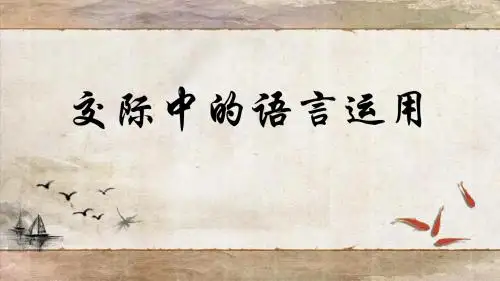 交际中的语言运用